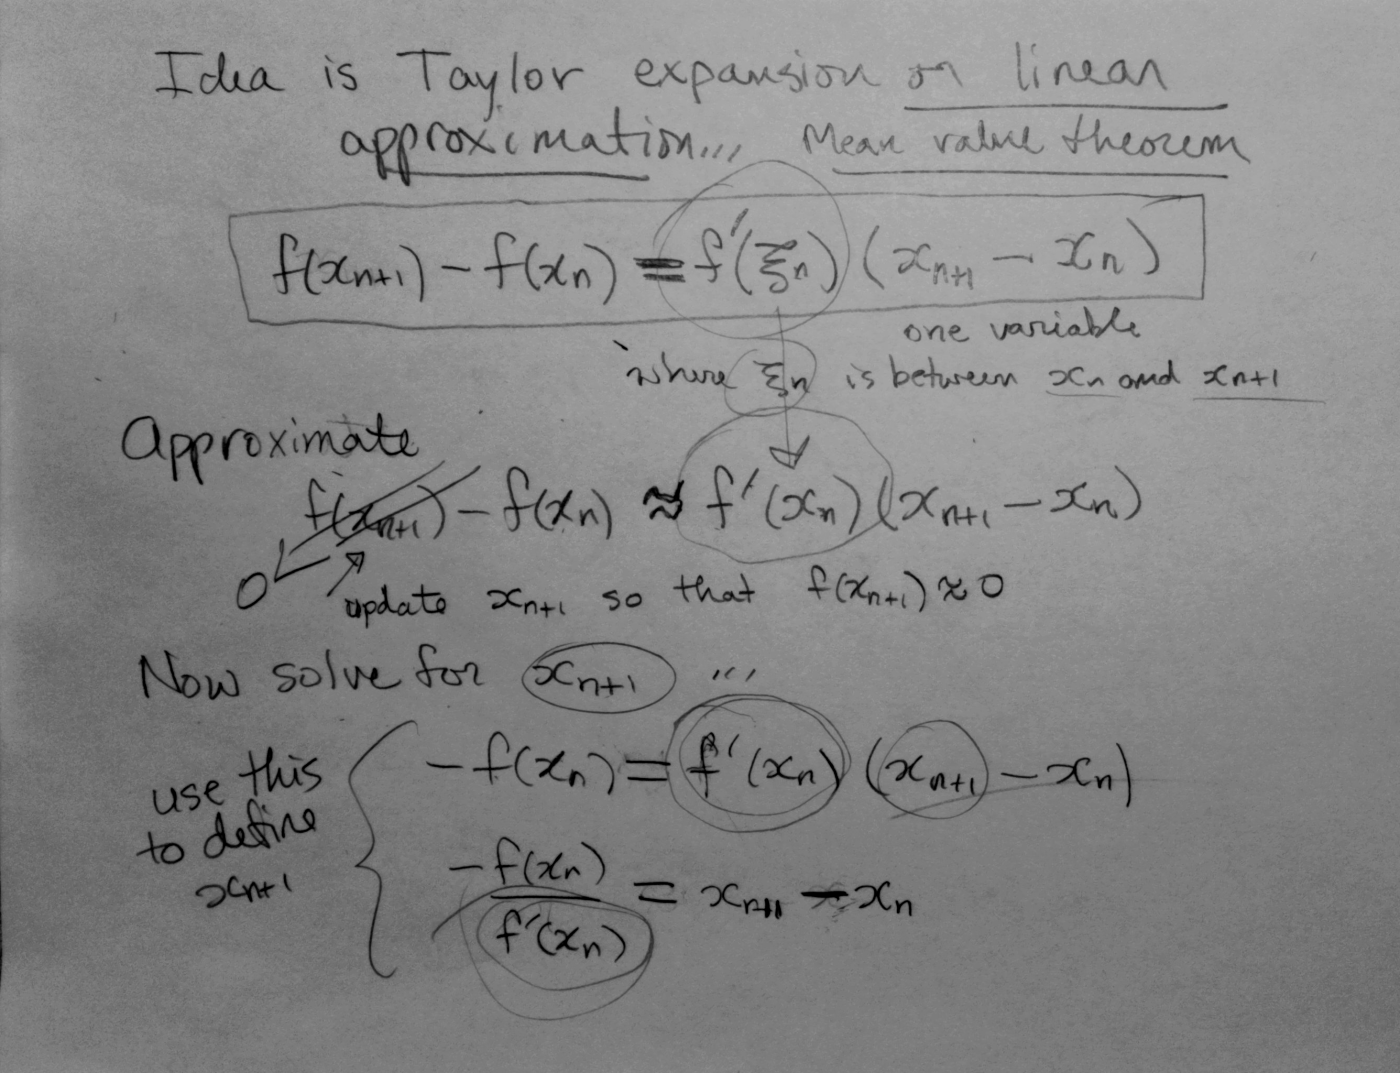 Idea is Taylor expansion or linear
approximation... Mean value theorem
f(xn+1) - f(xn) = f'(ξn) (xn+1 - xn)
one variable
where ξn is between xn and xn+1
Approximate
f(xn+1) - f(xn) ≈ f'(xn)(xn+1 - xn)
0
update xn+1 so that f(xn+1) ≈ 0
Now solve for xn+1 ...
-f(xn) = f'(xn) (xn+1 - xn)
use this
to define
xn+1
-f(xn)/f'(xn) = xn+1 - xn